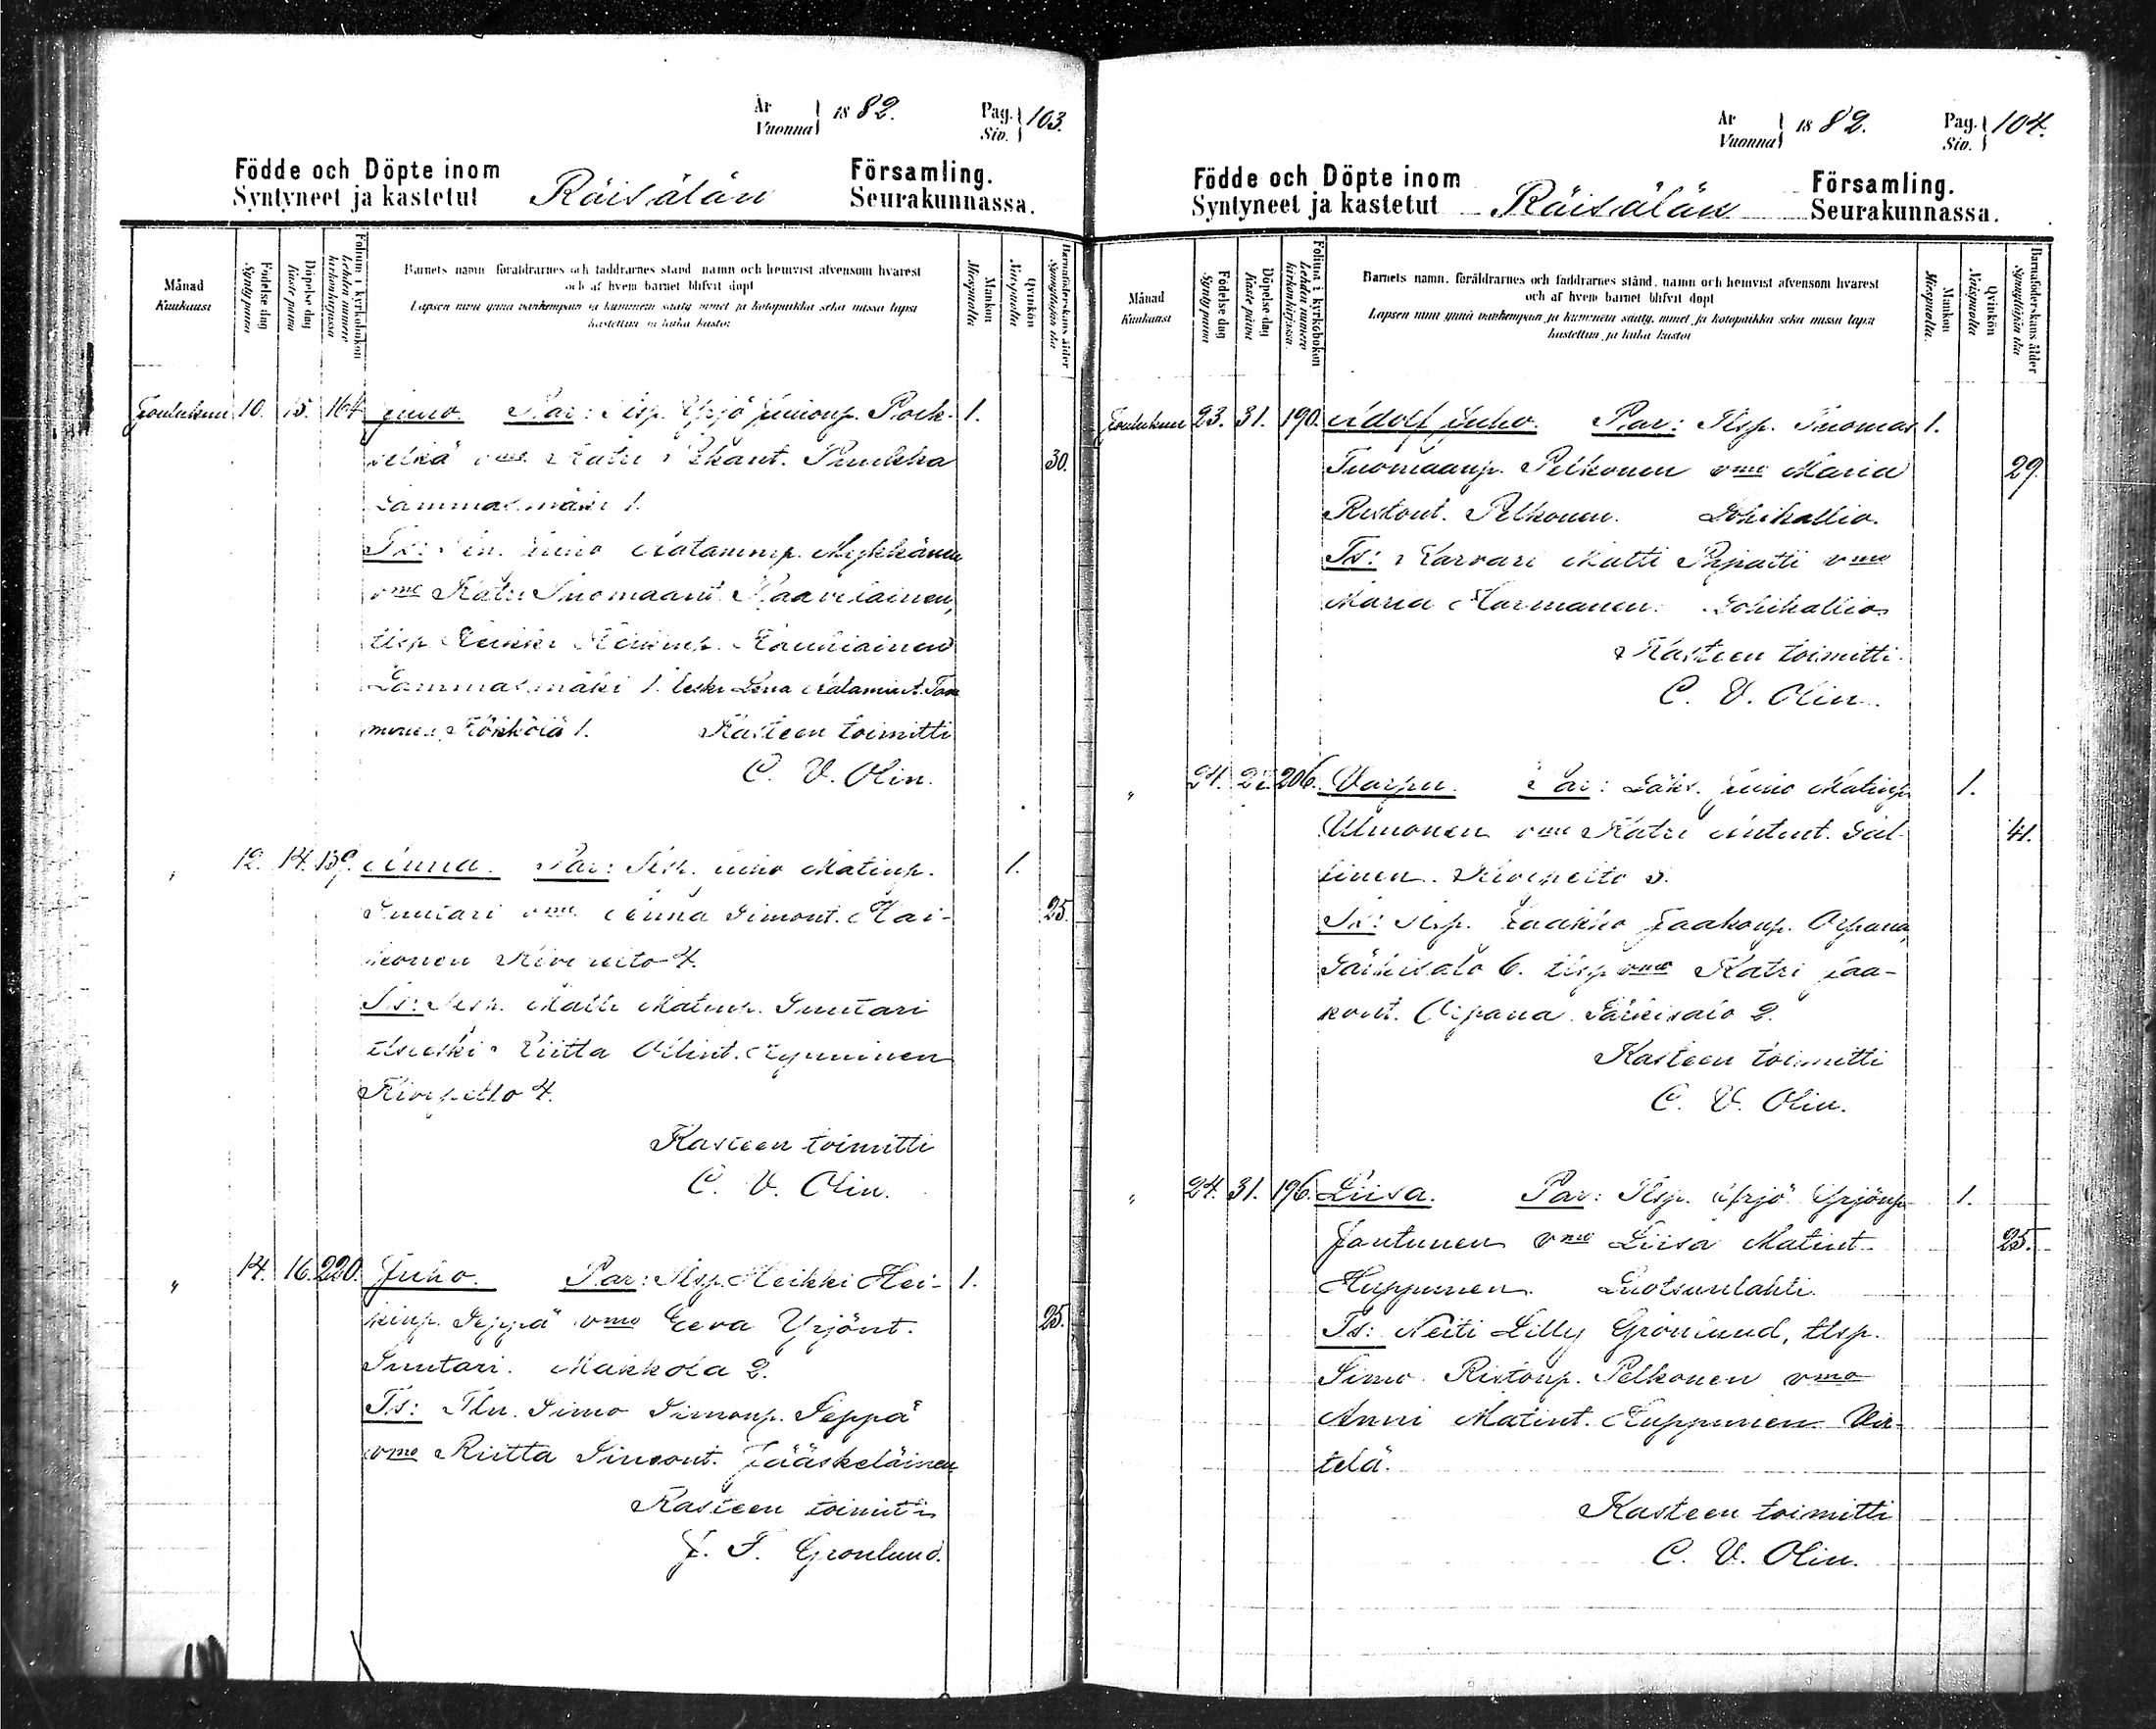 År
Vuonna } 1882.
Pag.
Siv. } 103.
Födde och Döpte inom
Syntyneet ja kastetut Räisälän Församling.
Seurakunnassa.
Månad
Kuukausi
Födelse dag
Synty päivä
Döpelse dag
Kaste päivä
Folium i kyrkoboken
Lehden numero
kirkonkirjassa
Barnets namn, föräldrarnes och faddrarnes stånd, namn och hemvist äfvensom hvarest
och af hvem barnet blifvit döpt
Lapsen nimi ynnä vanhempain ja kummein sääty, nimet ja kotopaikka sekä missä lapsi
kastettiin ja kuka kastoi
Mankön
Miespuolia
Qvinkön
Naispuolia
Barnaföderskans ålder
Synnyttäjän ikä
Joulukuu 10. 15. 164 Juho. Par: Tlsp. Yrjö Juhonp. 1.
vmo Katri 30.
Lammasmäki 1.
Ts: Juho Aataminp. Mykkänen
vmo Katri Tuomaant.
tlsp. Heikki Heikinp.
Lammasmäki 1. leski Lena Aatamint. Tam
monen, Könkölä 1. Kasteen toimitti
C. V. Olin.
" 12. 14. 139. Anna. Par: Juho Matinp. 1.
Suutari vmo Anna Simont. Kai- 25.
Kivipelto 4.
Ts: Matti Matinp. Suutari
Riitta Ollint.
Kivipelto 4.
Kasteen toimitti
C. V. Olin.
" 14. 16. 220. Juho. Par: Tlsp. Heikki Hei- 1.
kinp. Seppä vmo Eeva Yrjönt. 25.
Suutari. Makkola 2.
Ts: Tln. Simo Simonp. Seppä
vmo Riitta Simont. Jääskeläinen
Kasteen toimitti
J. F. Gronlund.
År
Vuonna } 1882.
Pag.
Siv. } 104.
Födde och Döpte inom
Syntyneet ja kastetut Räisälän Församling.
Seurakunnassa.
Månad
Kuukausi
Födelse dag
Synty päivä
Döpelse dag
Kaste päivä
Folium i kyrkoboken
Lehden numero
kirkonkirjassa
Barnets namn, föräldrarnes och faddrarnes stånd, namn och hemvist äfvensom hvarest
och af hvem barnet blifvit döpt
Lapsen nimi ynnä vanhempain ja kummein sääty, nimet ja kotopaikka sekä missä lapsi
kastettiin ja kuka kastoi
Mankön
Miespuolia
Qvinkön
Naispuolia
Barnaföderskans ålder
Synnyttäjän ikä
Joulukuu 23. 31. 190. Adolf Juho. Par: Tlsp. Tuomas 1.
Tuomaanp. Pelkonen vmo Maria 29.
Ristont. Pelkonen. Lohikallio.
Ts: Karvari Matti Pirjatti vmo
Maria Karmanen. Lohikallio.
Kasteen toimitti
C. V. Olin.
" 24. 27. 206. Varpu. Par: Juho Matinp. 1.
Ulmonen vmo Katri Antint. 41.
Kivipelto
Ts: Tlsp. Jaakko Jaakonp. Orpana,
Särkisalo 6. tlsp. vmo Katri Jaa-
kont. Orpana. Särkisalo 2.
Kasteen toimitti
C. V. Olin.
" 24. 31. 196. Liisa. Par: Tlsp. Yrjö Yrjönp. 1.
Jantunen vmo Liisa Matint. 25.
Huppunen. Luotsunlahti.
Ts: Neiti Lilly Grönlund, tlsp.
Simo Ristonp. Pelkonen vmo
Anni Matint. Huppunen. Vir-
telä.
Kasteen toimitti
C. V. Olin.